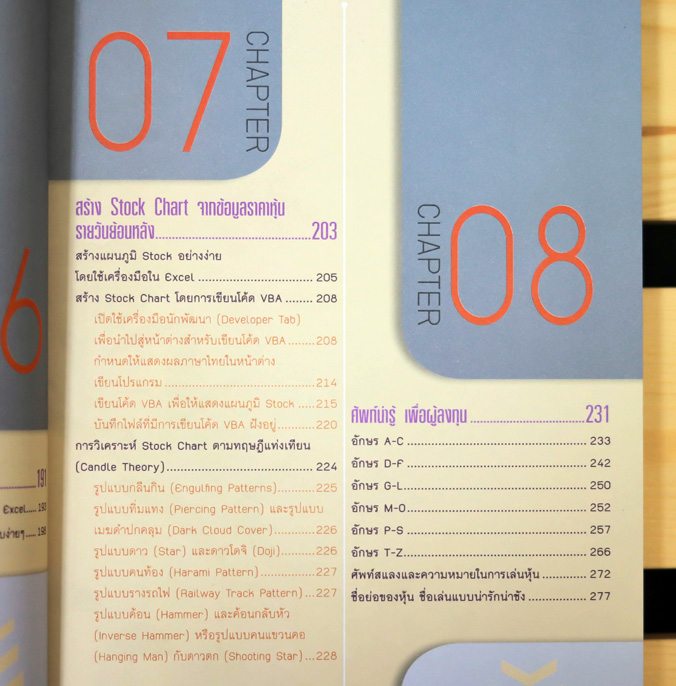 6
191
Excel..... 193
บง่ายๆ..... 198
07
CHAPTER
สร้าง Stock Chart จากข้อมูลราคาหุ้น
รายวันย้อนหลัง..........203
สร้างแผนภูมิ Stock อย่างง่าย
โดยใช้เครื่องมือใน Excel .......... 205
สร้าง Stock Chart โดยการเขียนโค้ด VBA ........ 208
เปิดใช้เครื่องมือนักพัฒนา (Developer Tab)
เพื่อนำไปสู่หน้าต่างสำหรับเขียนโค้ด VBA ........208
กำหนดให้แสดงผลภาษาไทยในหน้าต่าง
เขียนโปรแกรม .......... 214
เขียนโค้ด VBA เพื่อให้แสดงแผนภูมิ Stock .....215
บันทึกไฟล์ที่มีการเขียนโค้ด VBA ฝังอยู่..........220
การวิเคราะห์ Stock Chart ตามทฤษฎีแท่งเทียน
(Candle Theory).......... 224
รูปแบบกลืนกิน (Engulfing Patterns)...........225
รูปแบบทิ่มแทง (Piercing Pattern) และรูปแบบ
เมฆดำปกคลุม (Dark Cloud Cover)..........226
รูปแบบดาว (Star) และดาวโดจิ (Doji)..........226
รูปแบบคนท้อง (Harami Pattern)..........227
รูปแบบรางรถไฟ (Railway Track Pattern)...227
รูปแบบค้อน (Hammer) และค้อนกลับหัว
(Inverse Hammer) หรือรูปแบบคนแขวนคอ
(Hanging Man) กับดาวตก (Shooting Star)...228
CHAPTER
08
ศัพท์น่ารู้ เพื่อผู้ลงทุน..........231
อักษร A-C .......... 233
อักษร D-F .......... 242
อักษร G-L.......... 250
อักษร M-O .......... 252
อักษร P-S .......... 257
อักษร T-Z.......... 266
ศัพท์สแลงและความหมายในการเล่นหุ้น .......... 272
ชื่อย่อของหุ้น ชื่อเล่นแบบน่ารักน่าชัง .......... 277